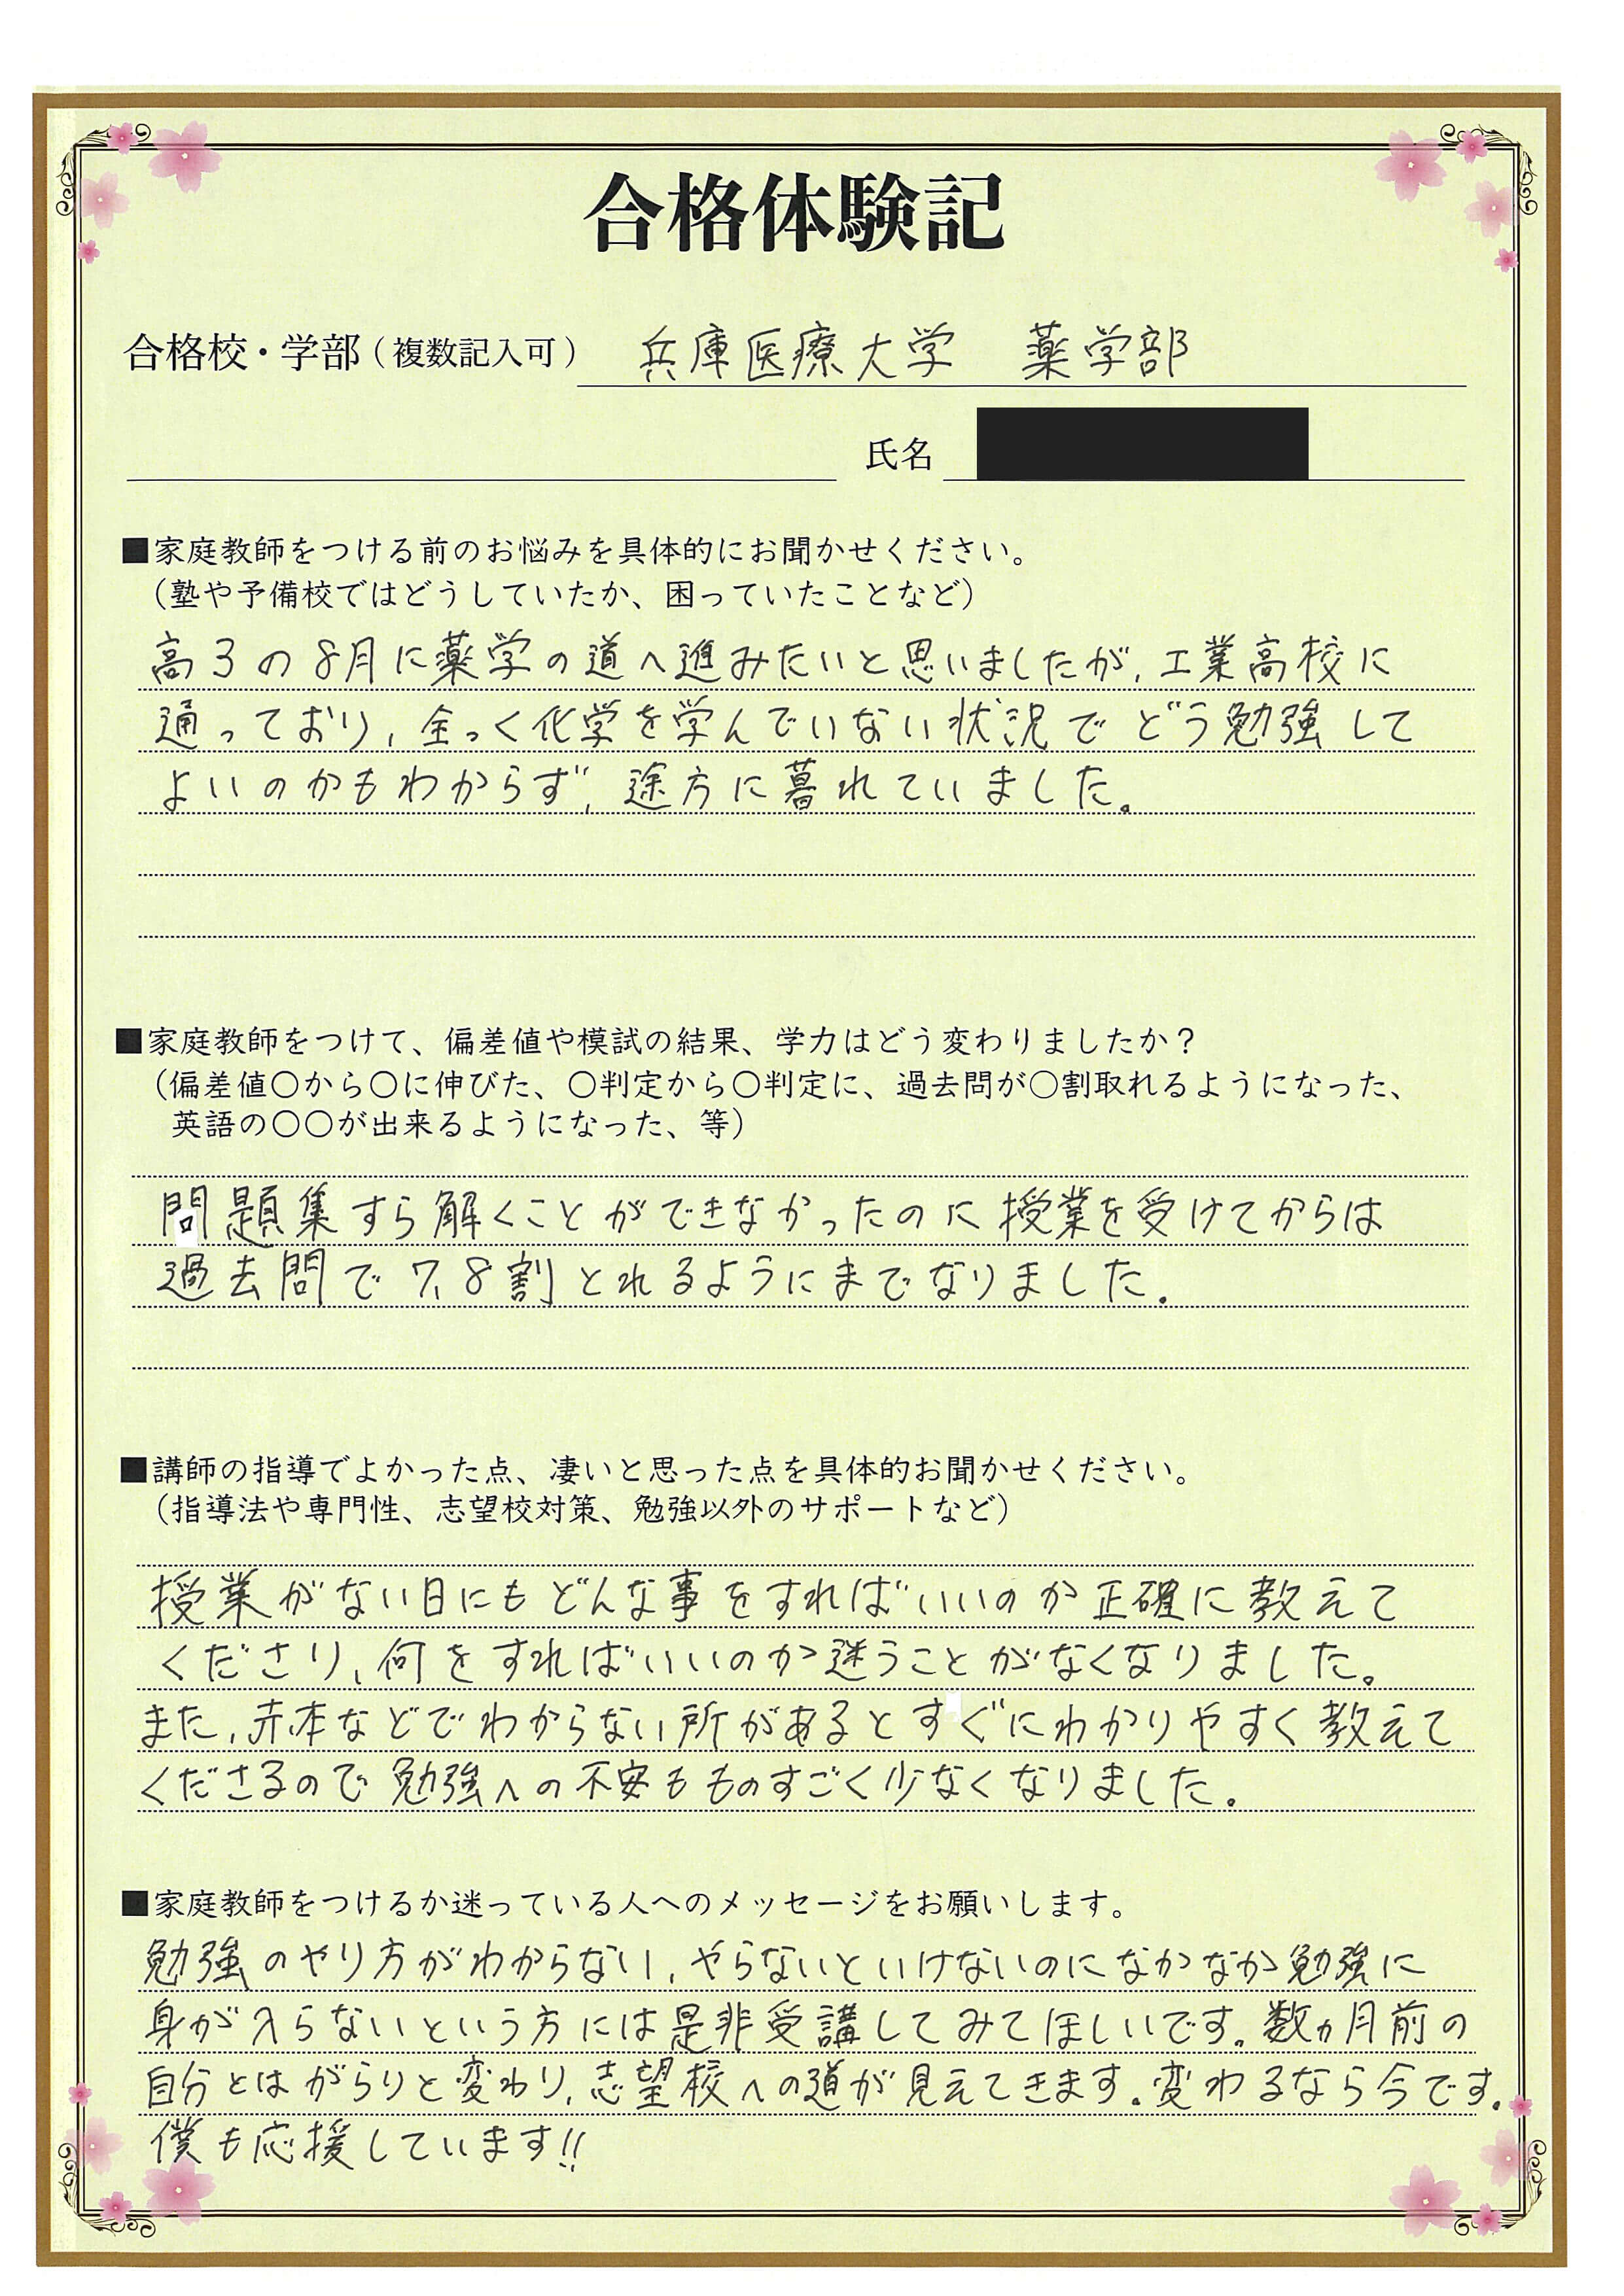 合格体験記
合格校・学部（複数記入可） 兵庫医療大学 薬学部
氏名
■家庭教師をつける前のお悩みを具体的にお聞かせください。
（塾や予備校ではどうしていたか、困っていたことなど）
高3の8月に薬学の道へ進みたいと思いましたが、工業高校に
通っており、全っく化学を学んでいない状況でどう勉強して
よいのかもわからず、途方に暮れていました。
■家庭教師をつけて、偏差値や模試の結果、学力はどう変わりましたか？
（偏差値〇から〇に伸びた、〇判定から〇判定に、過去問が〇割取れるようになった、
英語の〇〇が出来るようになった、等）
問題集すら解くことができなかったのに授業を受けてからは
過去問で7、8割とれるようにまでなりました。
■講師の指導でよかった点、凄いと思った点を具体的お聞かせください。
（指導法や専門性、志望校対策、勉強以外のサポートなど）
授業がない日にもどんな事をすればいいのか正確に教えて
くださり、何をすればいいのか迷うことがなくなりました。
また、赤本などでわからない所があるとすぐにわかりやすく教えて
くださるので勉強への不安もものすごく少なくなりました。
■家庭教師をつけるか迷っている人へのメッセージをお願いします。
勉強のやり方がわからない、やらないといけないのになかなか勉強に
身が入らないという方には是非受講してみてほしいです。数ヵ月前の
自分とはがらりと変わり、志望校への道が見えてきます。変わるなら今です。
僕も応援しています!!